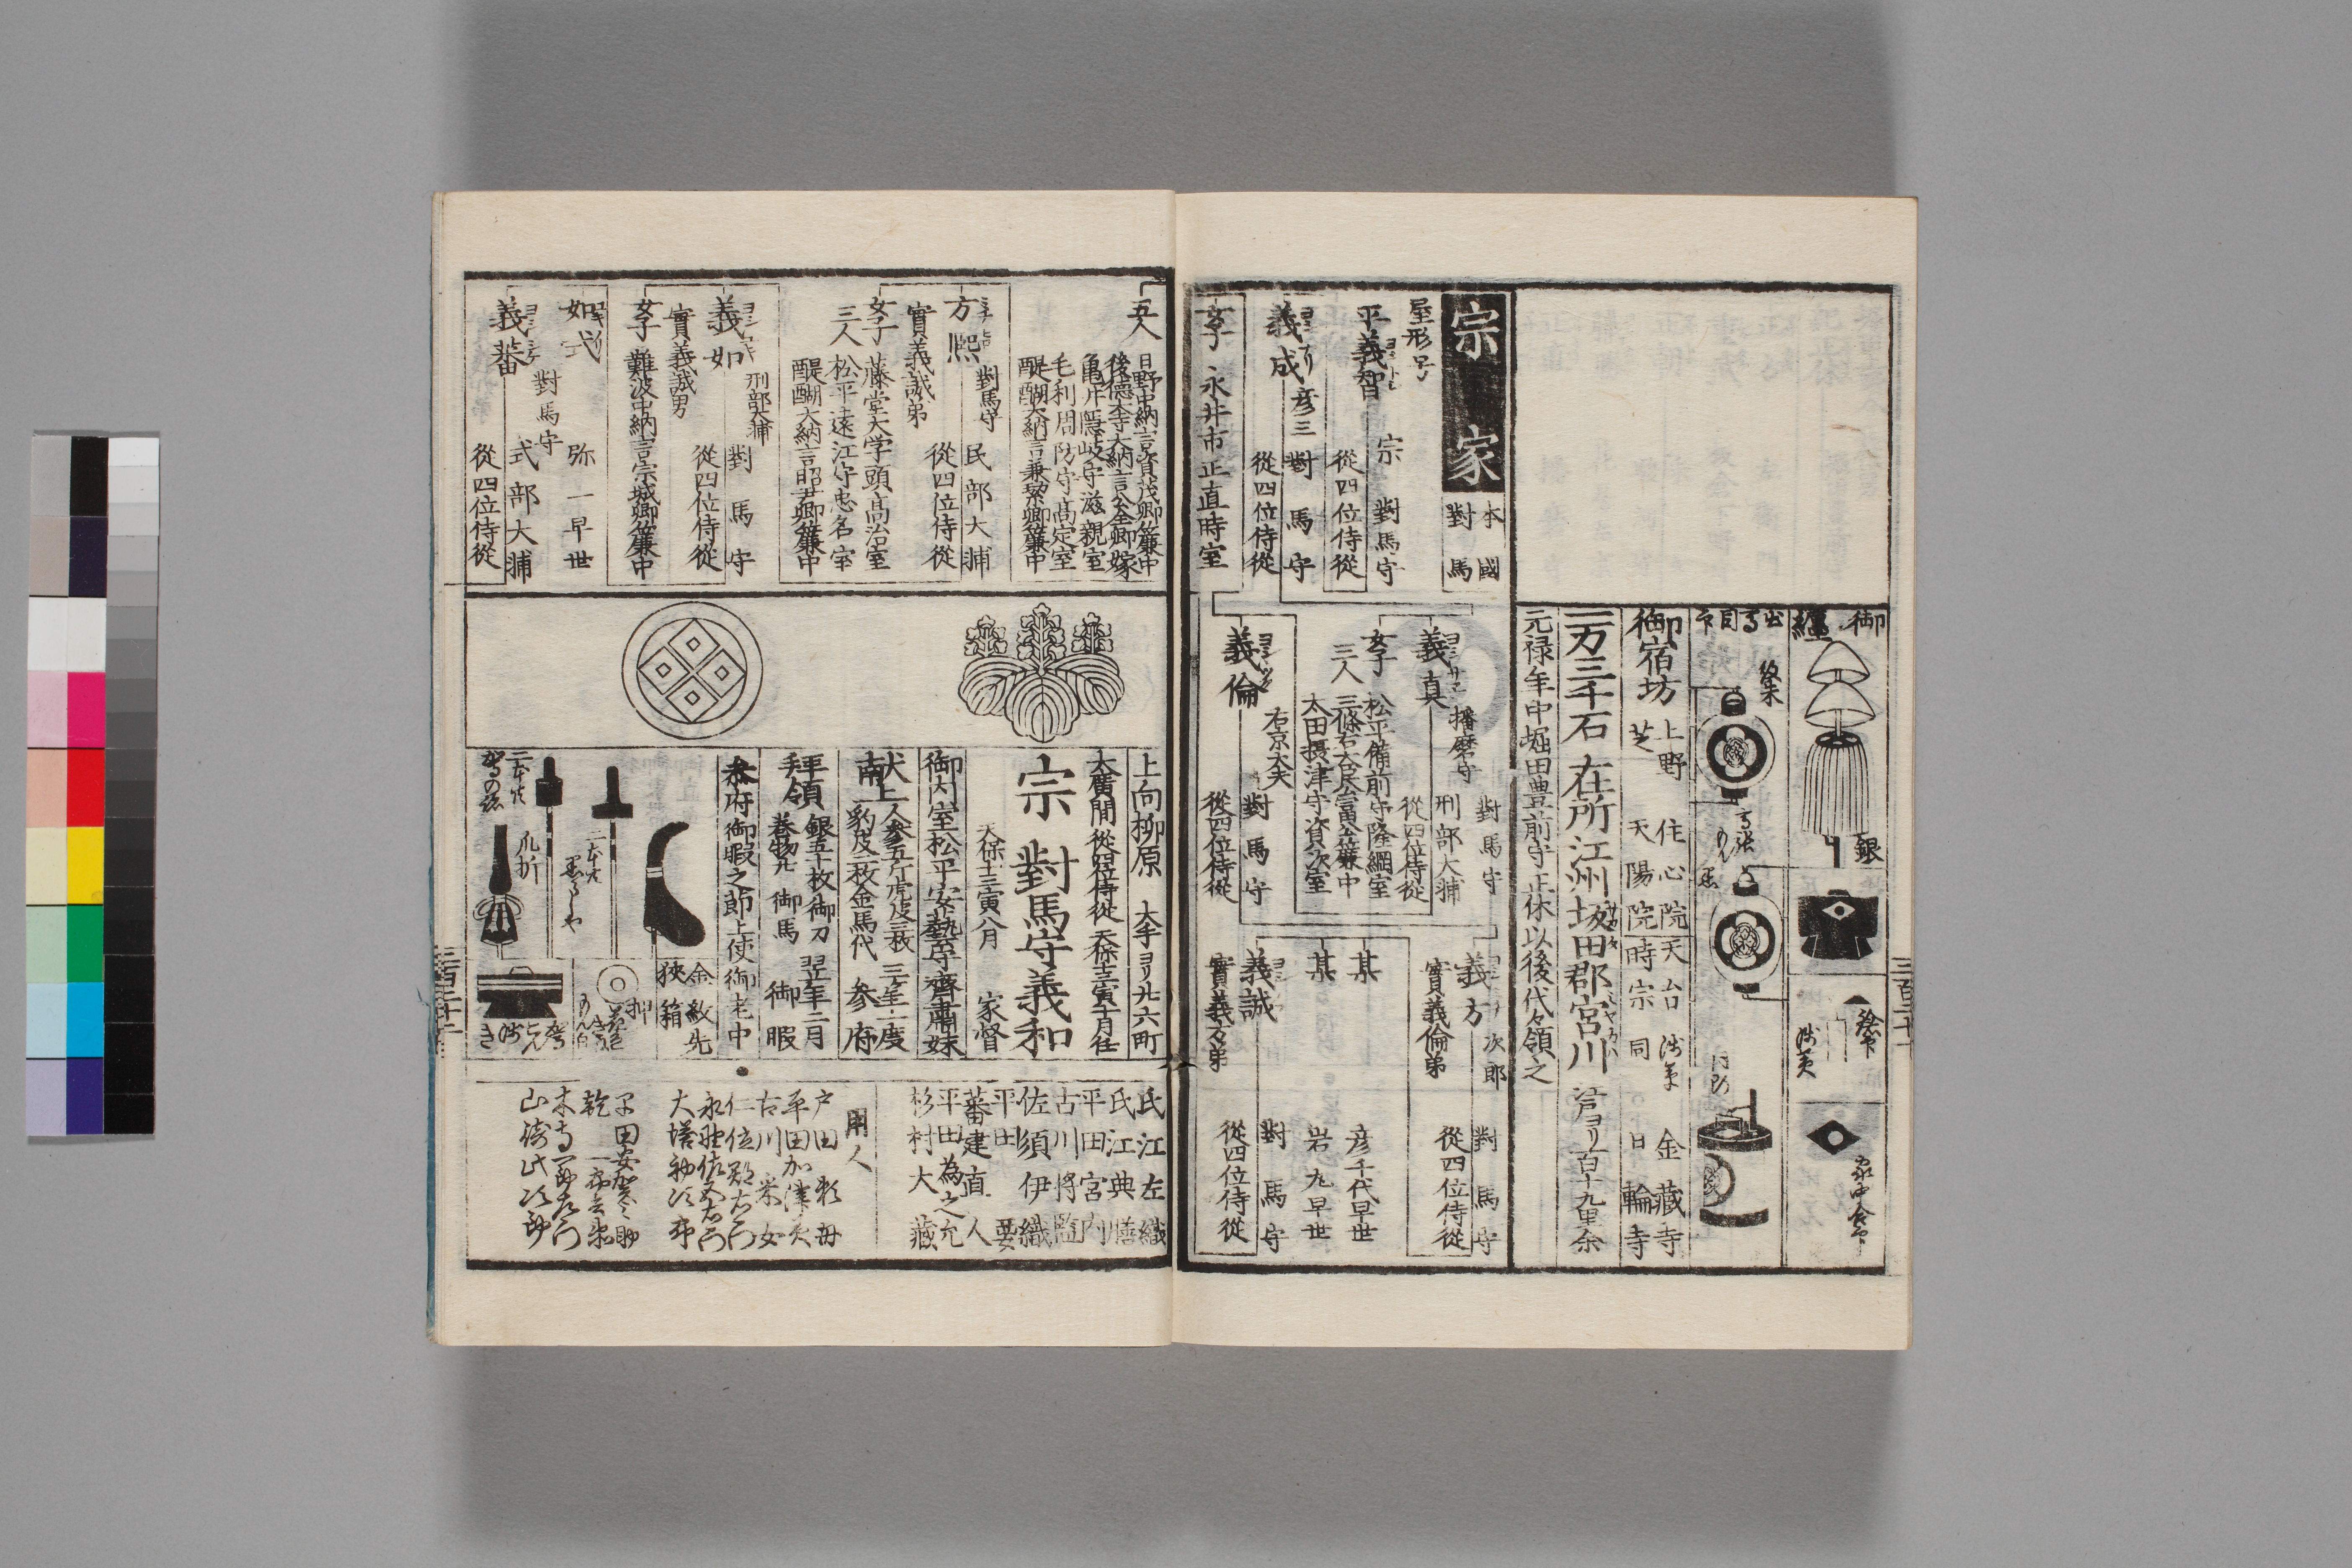 御纏
銀
出馬目印
家中合印
御宿坊
上野 住心院 天台
金藏寺
芝 天陽院 時宗 同
日輪寺
一万三千石 在所江州坂田郡宮川 江戸ヨリ百十九里余
元禄年中堀田豊前守正休以後代々領之
宗家
本國
對馬
屋形号
平義智 宗 對馬守
從四位侍從
義成 彦三 對馬守
從四位侍從
女子 永井市正直時室
義真 播磨守 對馬守
刑部大輔
從四位侍從
女子三人
松平備前守隆綱室
三條右大臣實治簾中
太田摂津守資次室
義倫 右京大夫 對馬守
從四位侍從
義方 次郎 對馬守
實義倫弟 從四位侍從
某 彦千代早世
某 岩丸早世
義誠 對馬守
實義方弟 從四位侍從
三百二十一
五人
日野中納言資茂卿簾中
後德大寺大納言公全卿嫁
亀井隠岐守滋親室
毛利周防守髙定室
醍醐大納言兼潔卿簾中
方熈 對馬守 民部大輔
實義誠弟 從四位侍從
女子三人
藤堂大学頭髙治室
松平遠江守忠名室
醍醐大納言昭尹卿簾中
義如 刑部大輔 對馬守
實義誠男 從四位侍從
女子 難波中納言宗城卿簾中
如式 弥一早世
義蕃 對馬守 式部大輔
從四位侍從
上向柳原 大手ヨリ廿六町
大廣間 從四位侍從 天保十三寅十月任
宗對馬守義和
天保十三寅八月 家督
御内室松平安藝守齊肅妹
献上 人参五斤虎皮三枚
豹皮二枚金馬代
三年一度
南 参府
拝領 銀五十枚御刀
巻物廿 御馬
翌年二月
御暇
参府御暇之節上使御老中
二本共
爪折
金紋先
狹箱
押
氏江左織
氏江典膳
平田宮内
古川将監
佐須伊織
平田要人
蕃建直
平田為之允
杉村大藏
用人
戸田頼母
平田加津美
古川采女
仁位郡右门
永野佐五右门
大塔弥次郎
三百二十二